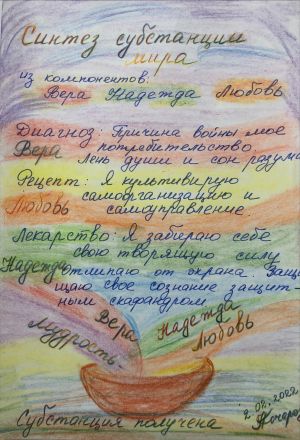 Синтез субстанции
мира
из компонентов:
Вера Надежда Любовь
Диагноз: Причина войны мое
Вера потребительство.
Лень души и сон разума
Рецепт: Я культивирую
самоорганизацию и
Любовь самоуправление.
Лекарство: Я забираю себе
свою творящую силу
Надежда отлипаю от экрана. Защи
щаю свое сознание защит-
ным скафандром
Мудрость- Вера Надежда
Любовь
2.02.2022
Субстанция получена